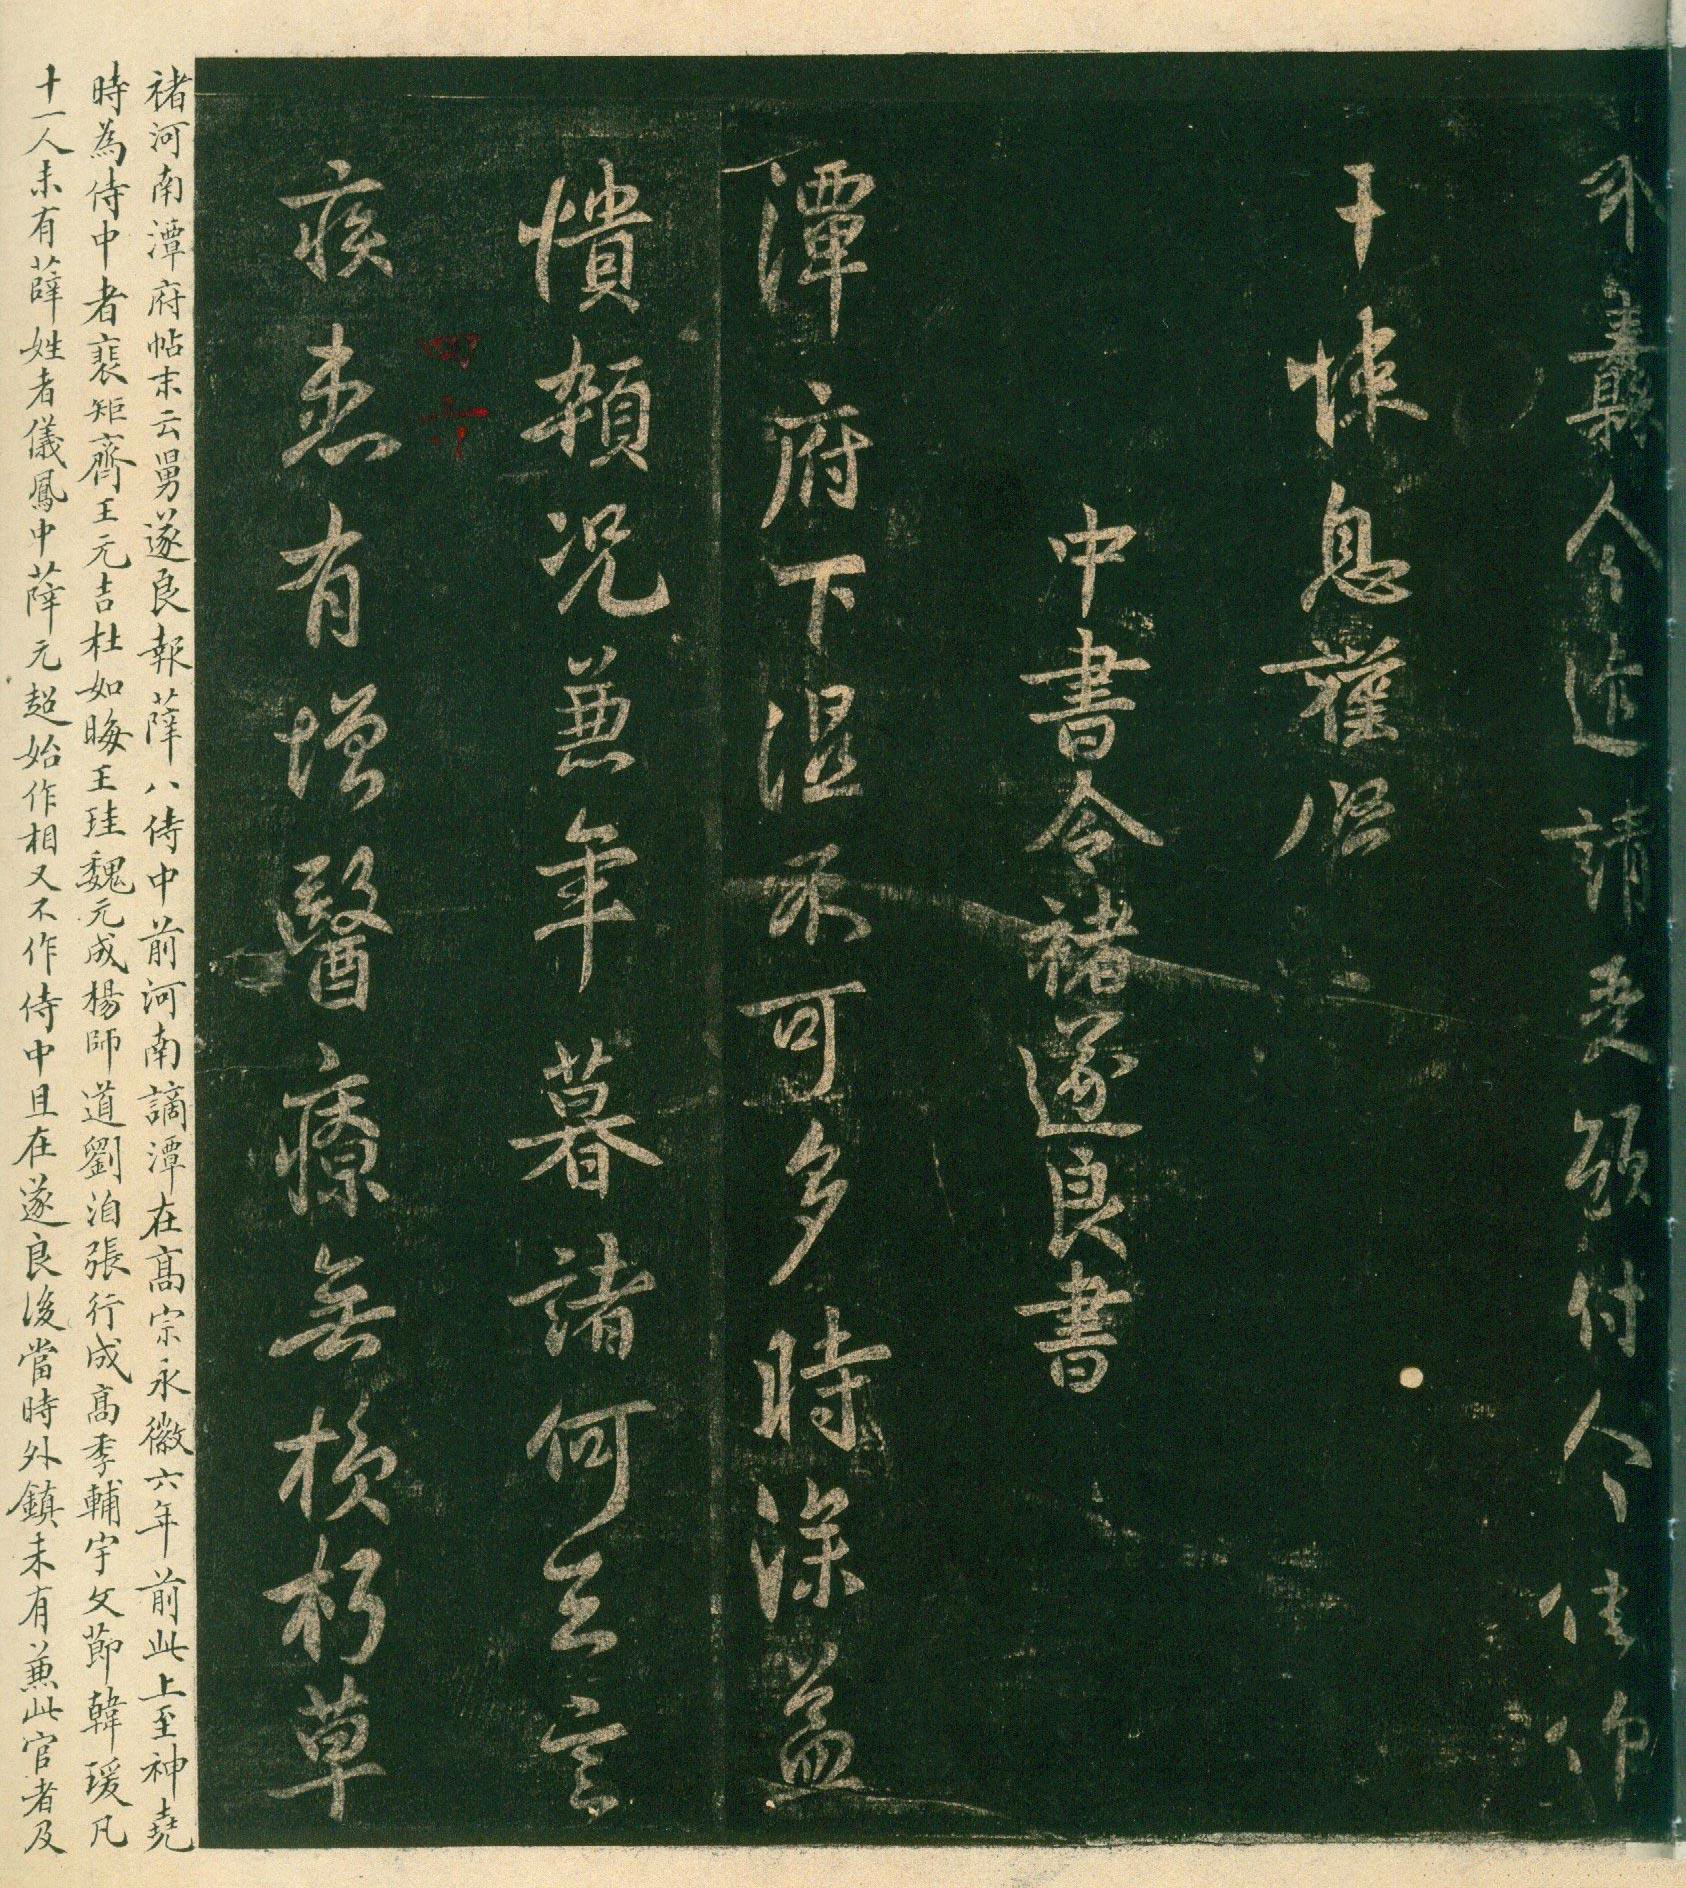 纛令造請受領付人
干悚息
中書令褚遂良書
潭府下濕不可多時深益
憒頼況兼年暮諸何足言
四十
疾患有增醫療無損朽草
褚河南潭府帖末云舅遂良報薛八侍中前河南謫潭在高宗永徽六年前此上至神堯
時為侍中者裴矩齊王元吉杜如晦王珪魏元成楊師道劉洎張行成高季輔宇文節韓瑗凡
十一人未有薛姓者儀鳳中薛元超始作相又不作侍中且在遂良後當時外鎮未有兼此官者及